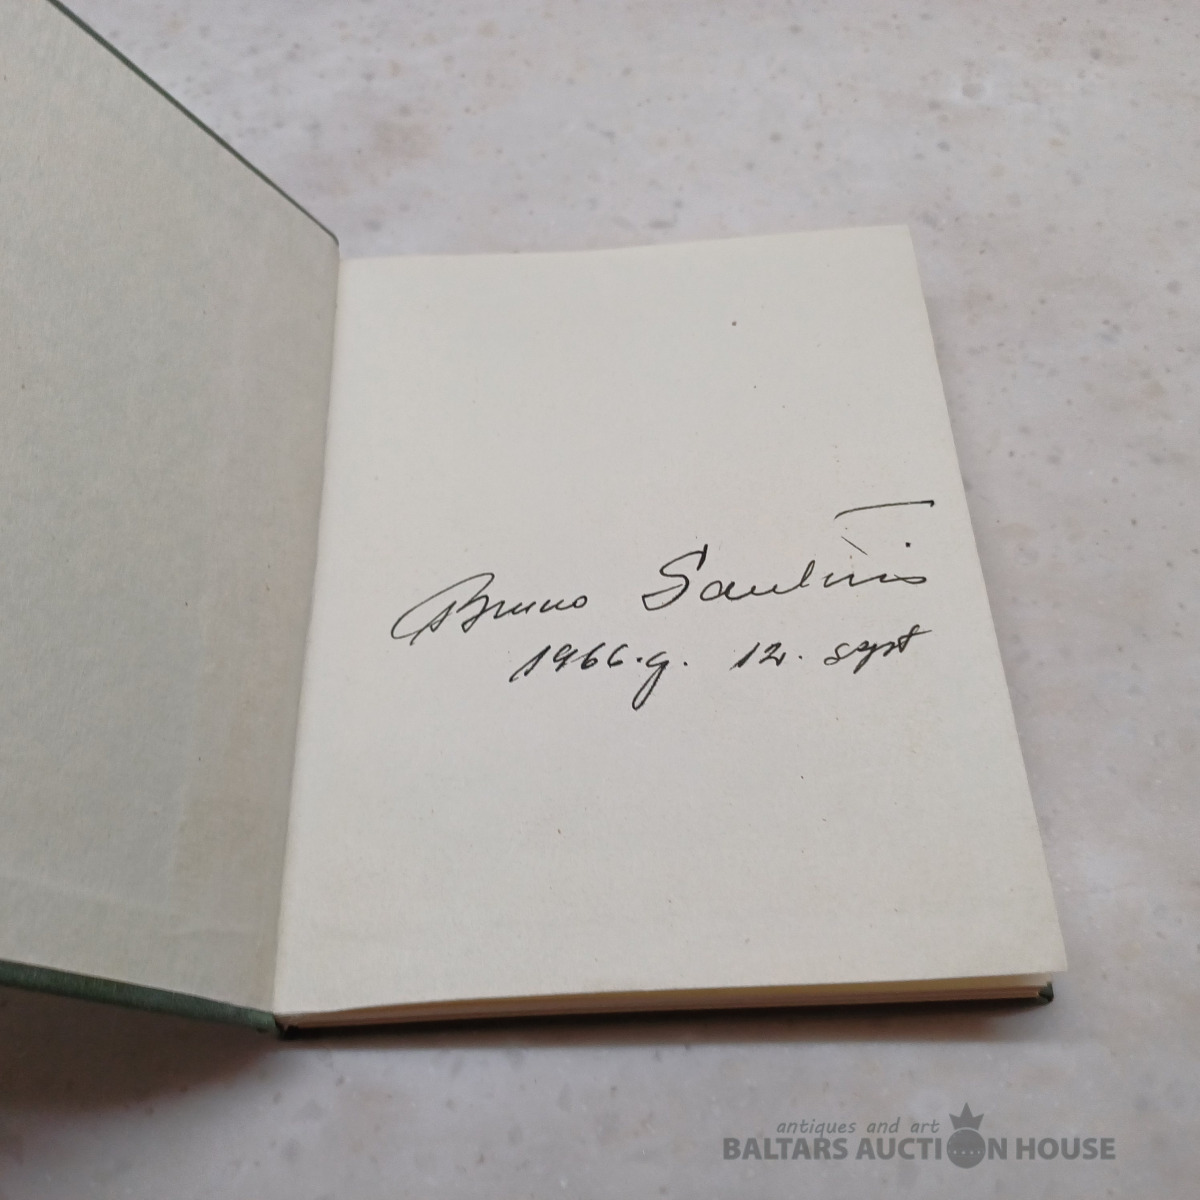 Bruno Saulītis
1966.g. 12. sept
antiques and art
BALTARS AUCTION HOUSE